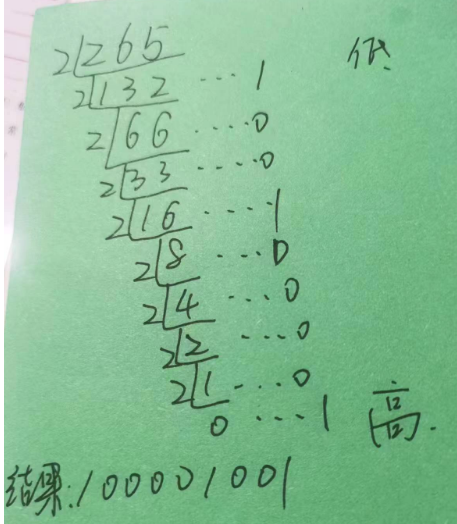 2 265 低
2 132 ... 1
2 66 .... 0
2 33 .... 0
2 16 .... 1
2 8 ... 0
2 4 ... 0
2 2 ... 0
2 1 ... 0
0 ... 1 高.
结果:100001001